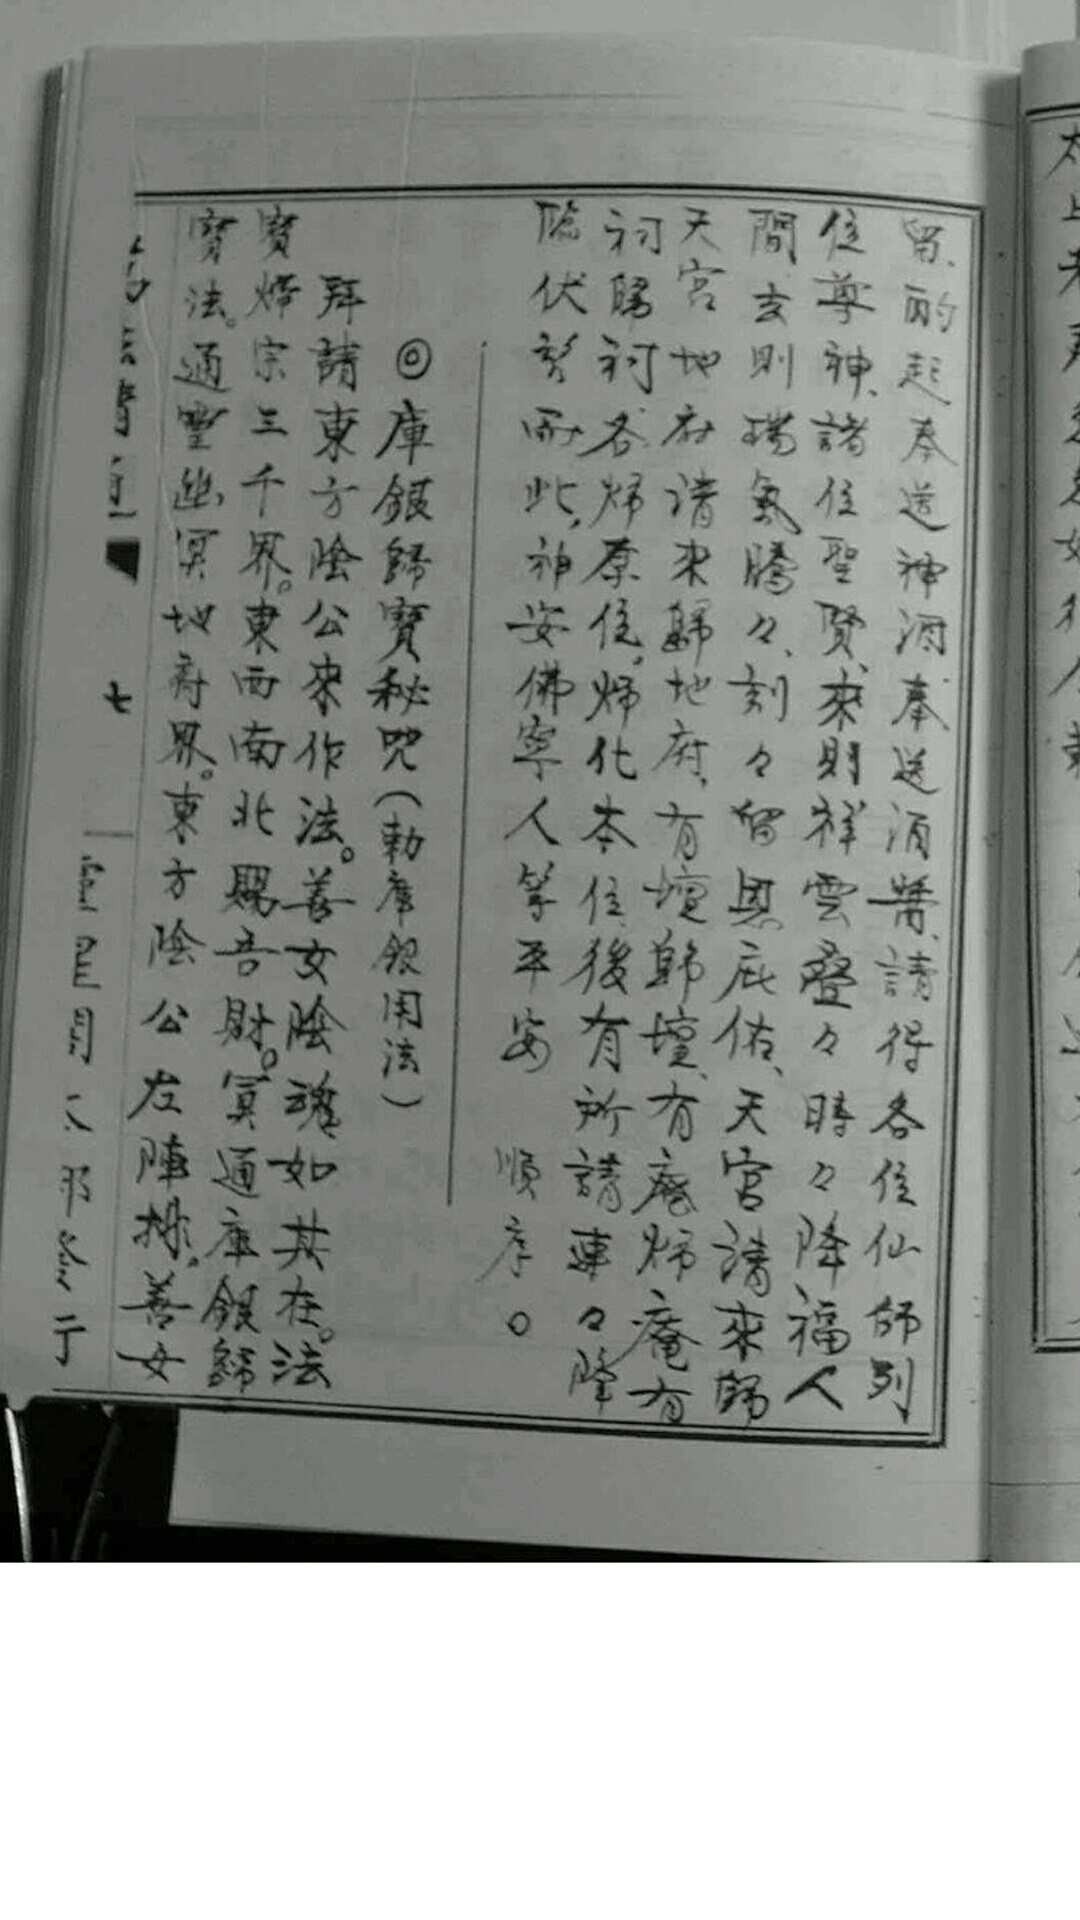 留、酌起奉送神酒奉送酒醬、請得各位仙師列
位尊神、諸位聖賢、來則祥雲叠々時々降福人
間、去則瑞氣騰々、刻々留恩庇佑、天宮請來歸
天宮地府請來歸地府、有壇歸壇、有庵歸庵有
祠歸祠各歸原位。歸化本位後有所請速々降
臨伏望而此、神安佛寧人等平安 順序。
◎庫銀歸寶秘咒(勅庫銀用法)
拜請東方陰公來作法。善女陰魂如其在。法
寶宗三千界。東西南北賜吾財。冥通庫銀歸
寶法。通靈幽冥地府界。東方陰公左陣排。善女
七